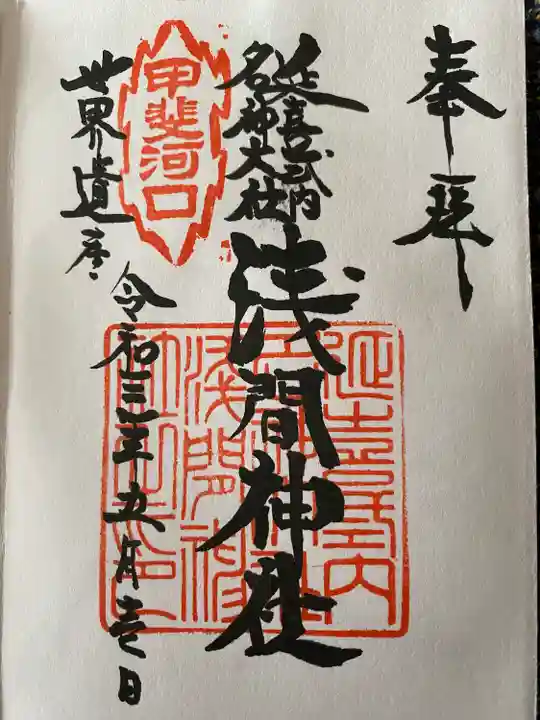 奉拝
延喜式内
名神大社
浅間神社
甲斐河口
世界遺産
令和三年五月壱日
延喜式内